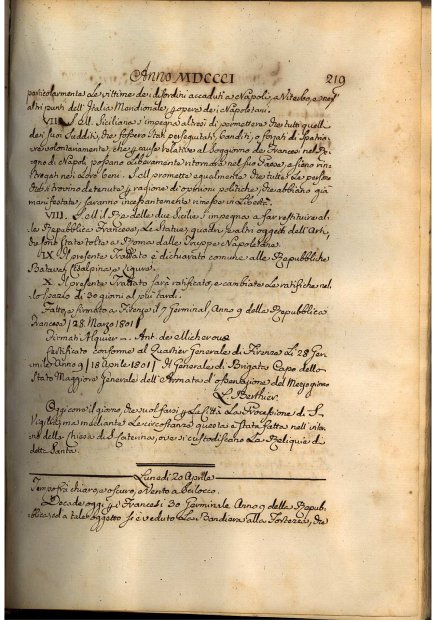 Anno MDCCCI 219
particolarmente ale vittime dei disordini accaduti a Napoli, a Viterbo, e negl'
altri punti dell' Italia Meridionale, p opera dei Napoletani.
VII. S.M. Siciliana s'impegna altresi di permettere che tutti quelli
de i suoi Sudditi, che fossero stati perseguitati, banditi, o forzati di Spatria-
re volontariamente, che p cause relative al soggiorno de Francesi nel Re-
gno di Napoli possano liberamente ritornare nel suo Paese, e siano rin-
tregati nei Loro beni. S.M. promette egualmente che tutte Le persone
che si trovino detenute p ragione di opinioni politiche, che abbiano già
manifestate, saranno incessantemente rimesse in Libertà.
VIII. S.M. il Re delle due Sicilie s'impegna a far restituire al-
la Repubblica Francese, Le Statue, quadri, e altri oggetti dell'Arti,
che sono state tolte a Roma dalle Truppe Napoletane.
IX. Il presente Trattato è dichiarato comune alle Repubbliche
Batava, Cisalpina, e Ligure.
X. Il presente Trattato sarà ratificato, e cambiate Le ratifiche nel-
lo spazio di 30 giorni al più tardi.
Fatto, e firmato a Firenze il 7 Germinal, Anno 9 della Repubblica
Francese | 28. Marzo 1801 |
Firmati Alquier — Ant. de Micheroux
Certificato conforme al Quartier Generale di Firenze Li 28 Ger-
mile Anno 9 | 18 Aprile 1801 | Il Generale di Brigata Capo dello
Stato Maggiore Generale dell'Armata d'osservazione del Mezzogiorno
L. Berthier.
Oggi come il giorno, che suol farsi p La Città La Processione di S.
Vigil, ma mediante Le circostanze questa è stata fatta nell' inter-
no della Chiesa di S. Caterina, ove si custodiscono Le Reliquie di
detta Santa.
Lunedi 20 Aprile
Tempo frà chiaro, e oscuro, e Vento a scilocco.
Decade oggi p i Francesi 30 Germinale Anno 9 della Repub-
blica, ed a tale oggetto si è veduto La Bandiera alla Fortezza, che